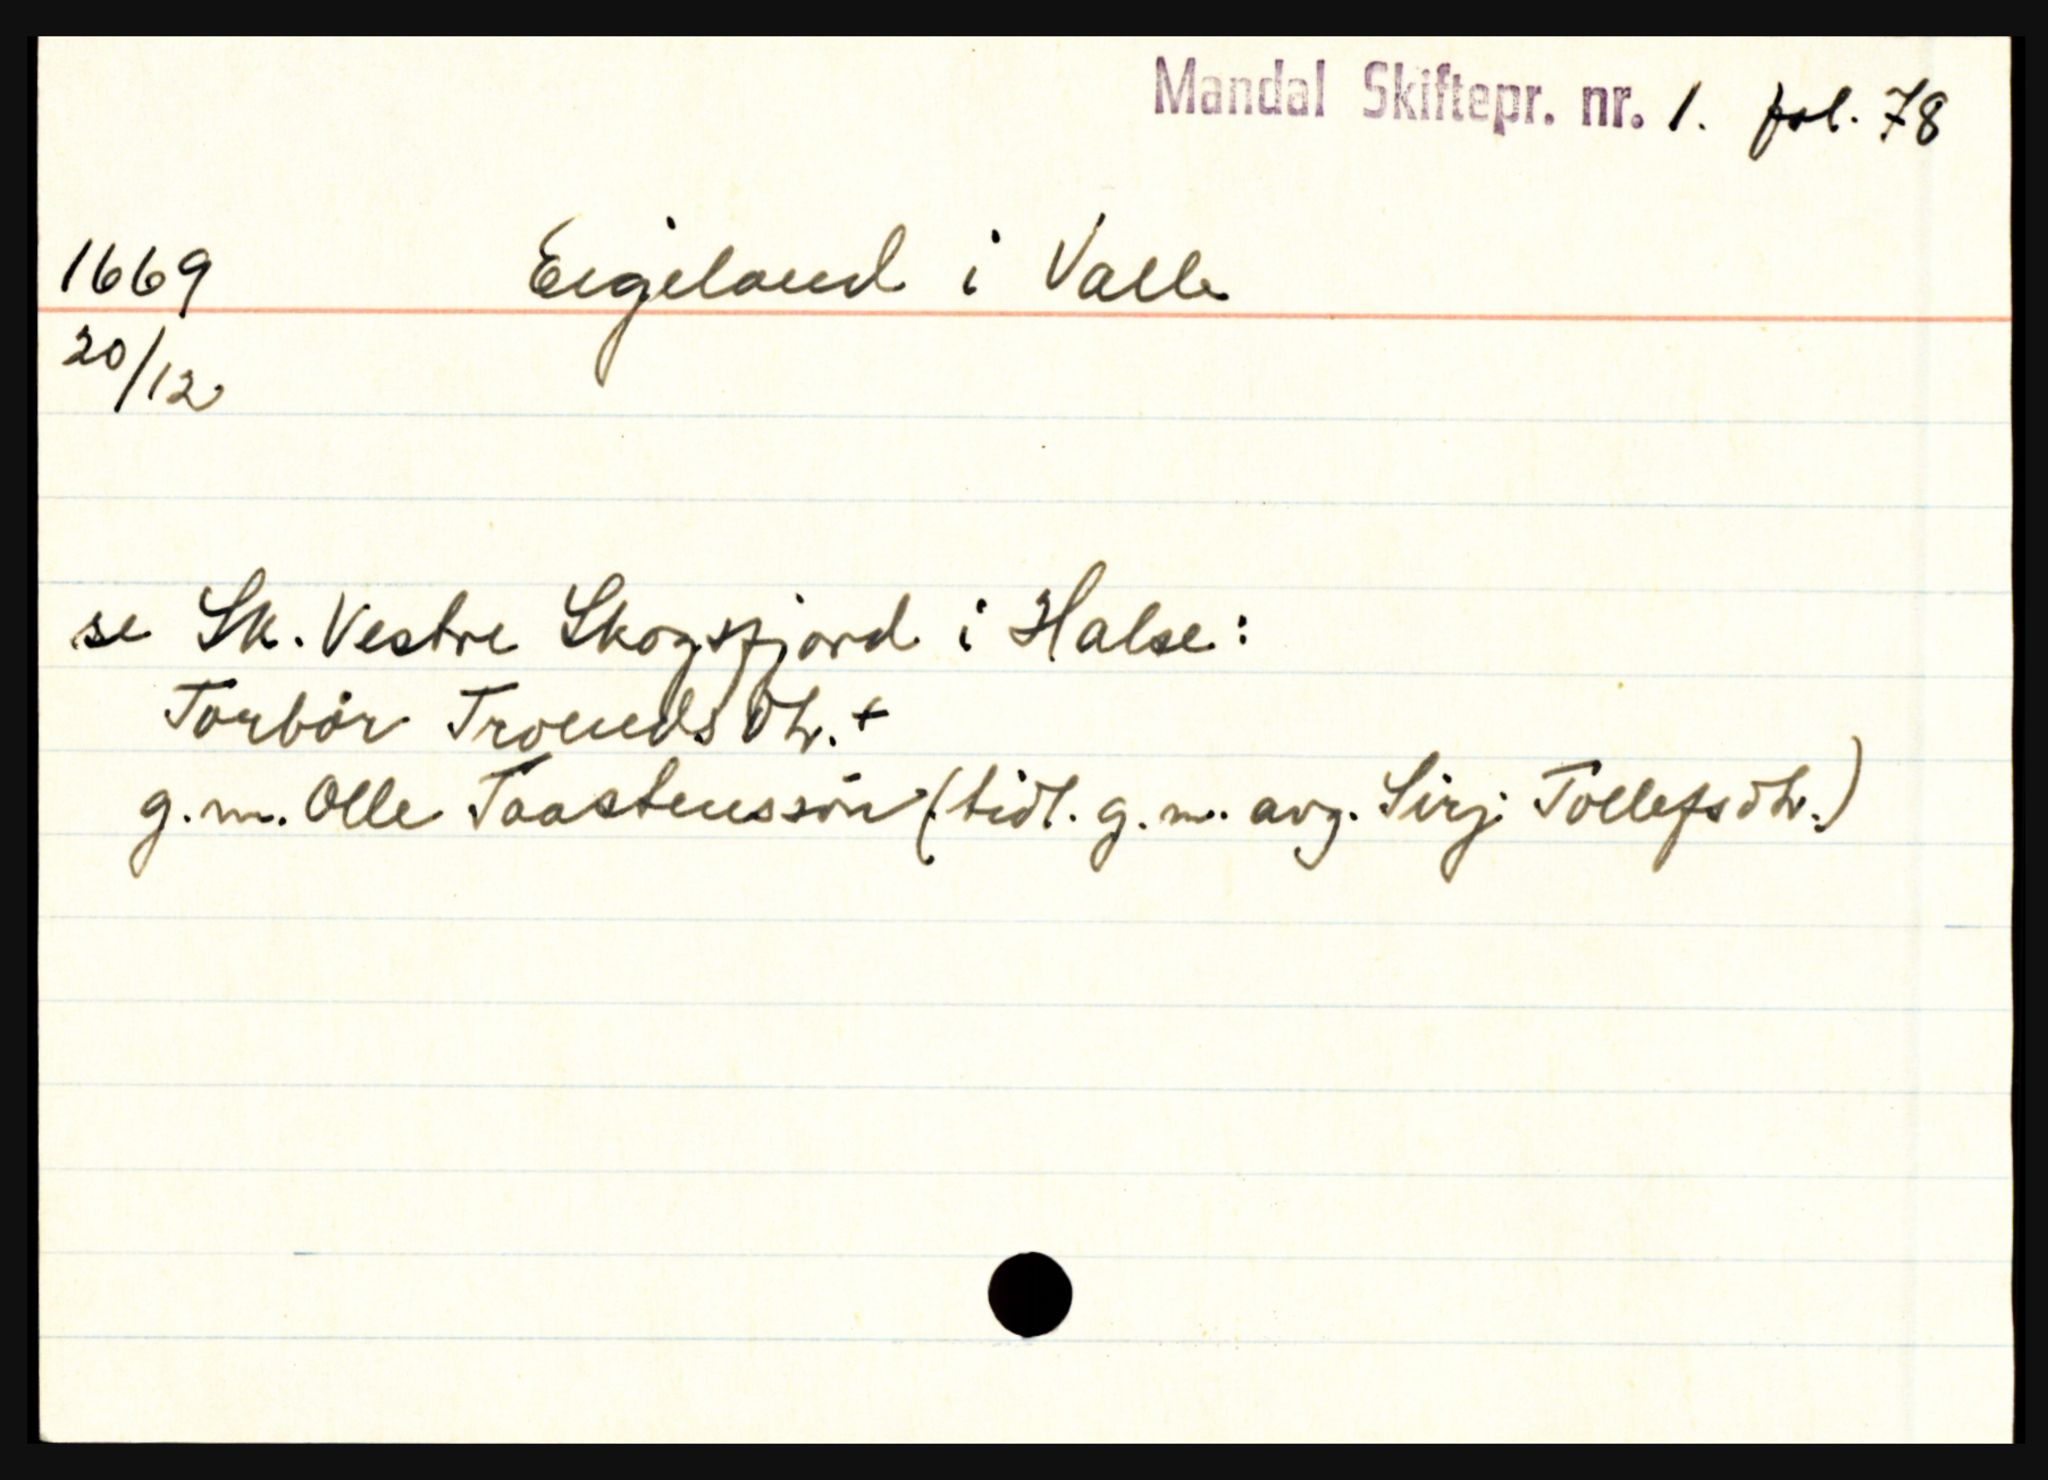 Mandal Skiftepr. nr. 1. fol. 78
1669 Eigeland i Valle
20/12
se Sk. Vestre Skogsfjord i Halse:
Torbör Tronds dtr. +
g. m. Olle Taastenssön (tidl. g. m. avg. Sirj Tollefsdtr.)